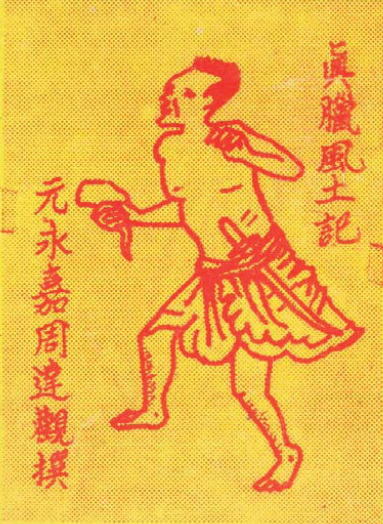 真臘風土記
元永嘉周達觀撰